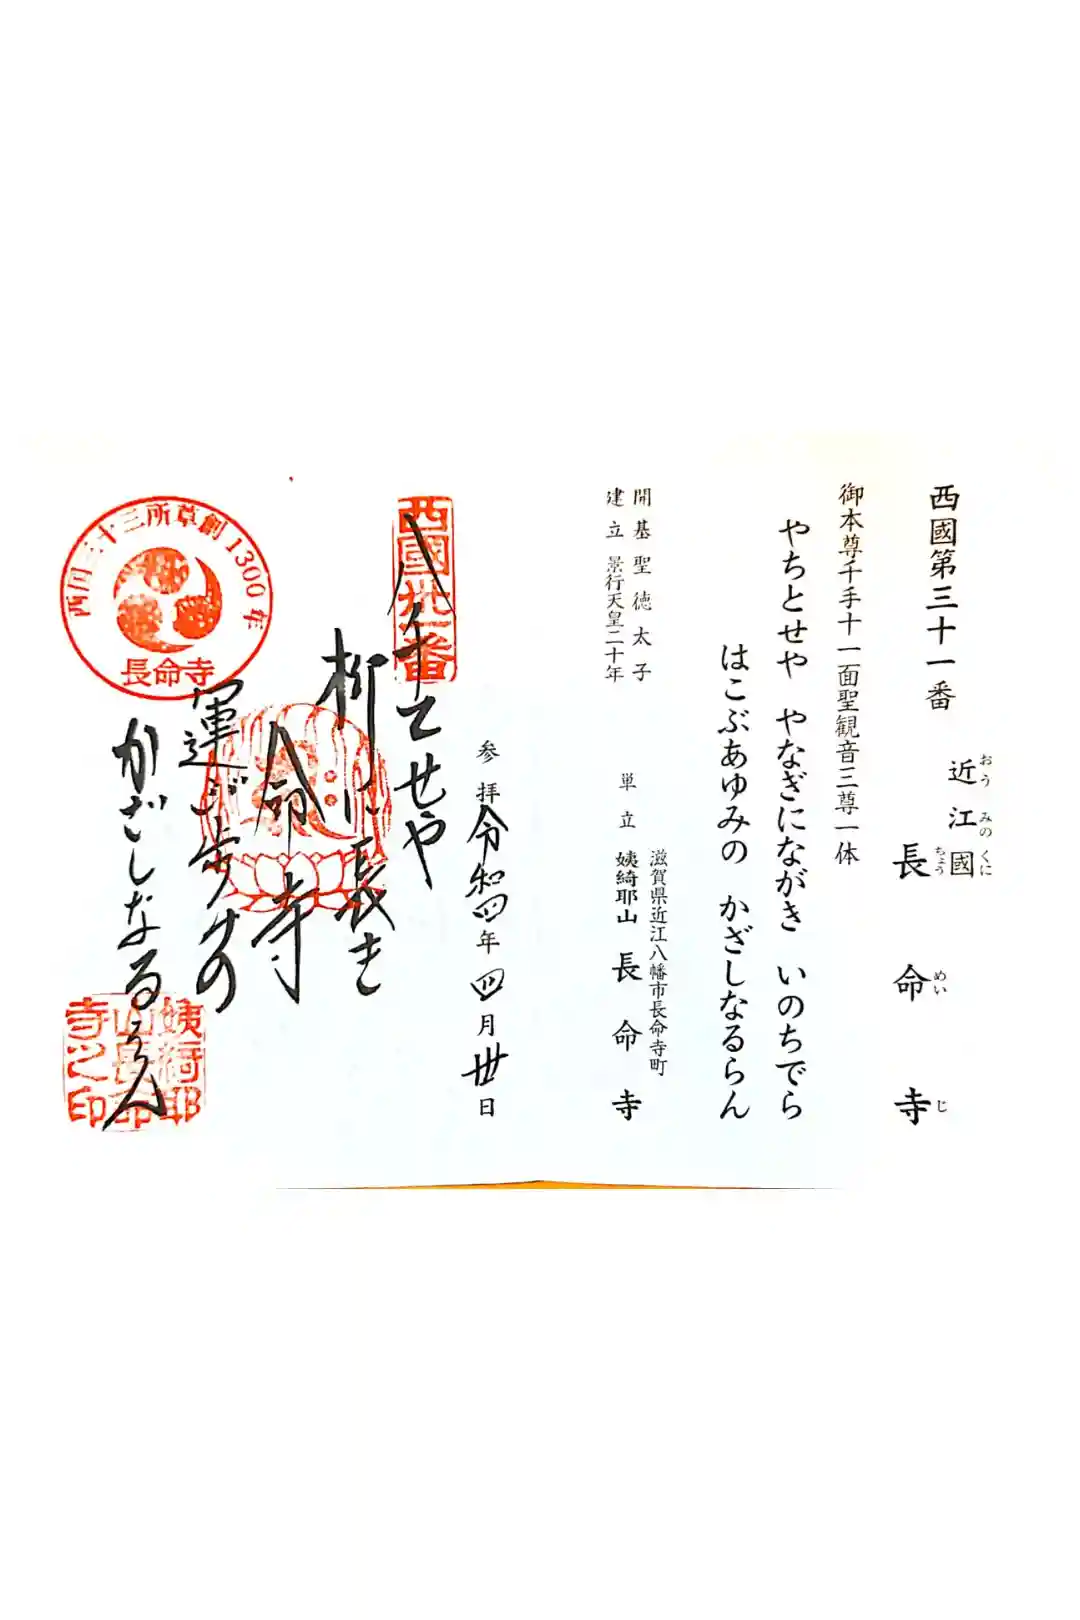 西國第三十一番
近江國
おうみのくに
長命寺
ちょうめいじ
御本尊千手十一面聖観音三尊一体
やちとせや やなぎにながき いのちでら
はこぶあゆみの かざしなるらん
開基聖徳太子
建立景行天皇二十年
滋賀県近江八幡市長命寺町
単立 姨綺耶山 長命寺
参拝令和四年四月卅日
西國卅一番
八千とせや
柳に長き
命寺
運ぶ歩みの
かざしなるらん
西国三十三所草創1300年
長命寺
姨綺耶
山長命
寺之印